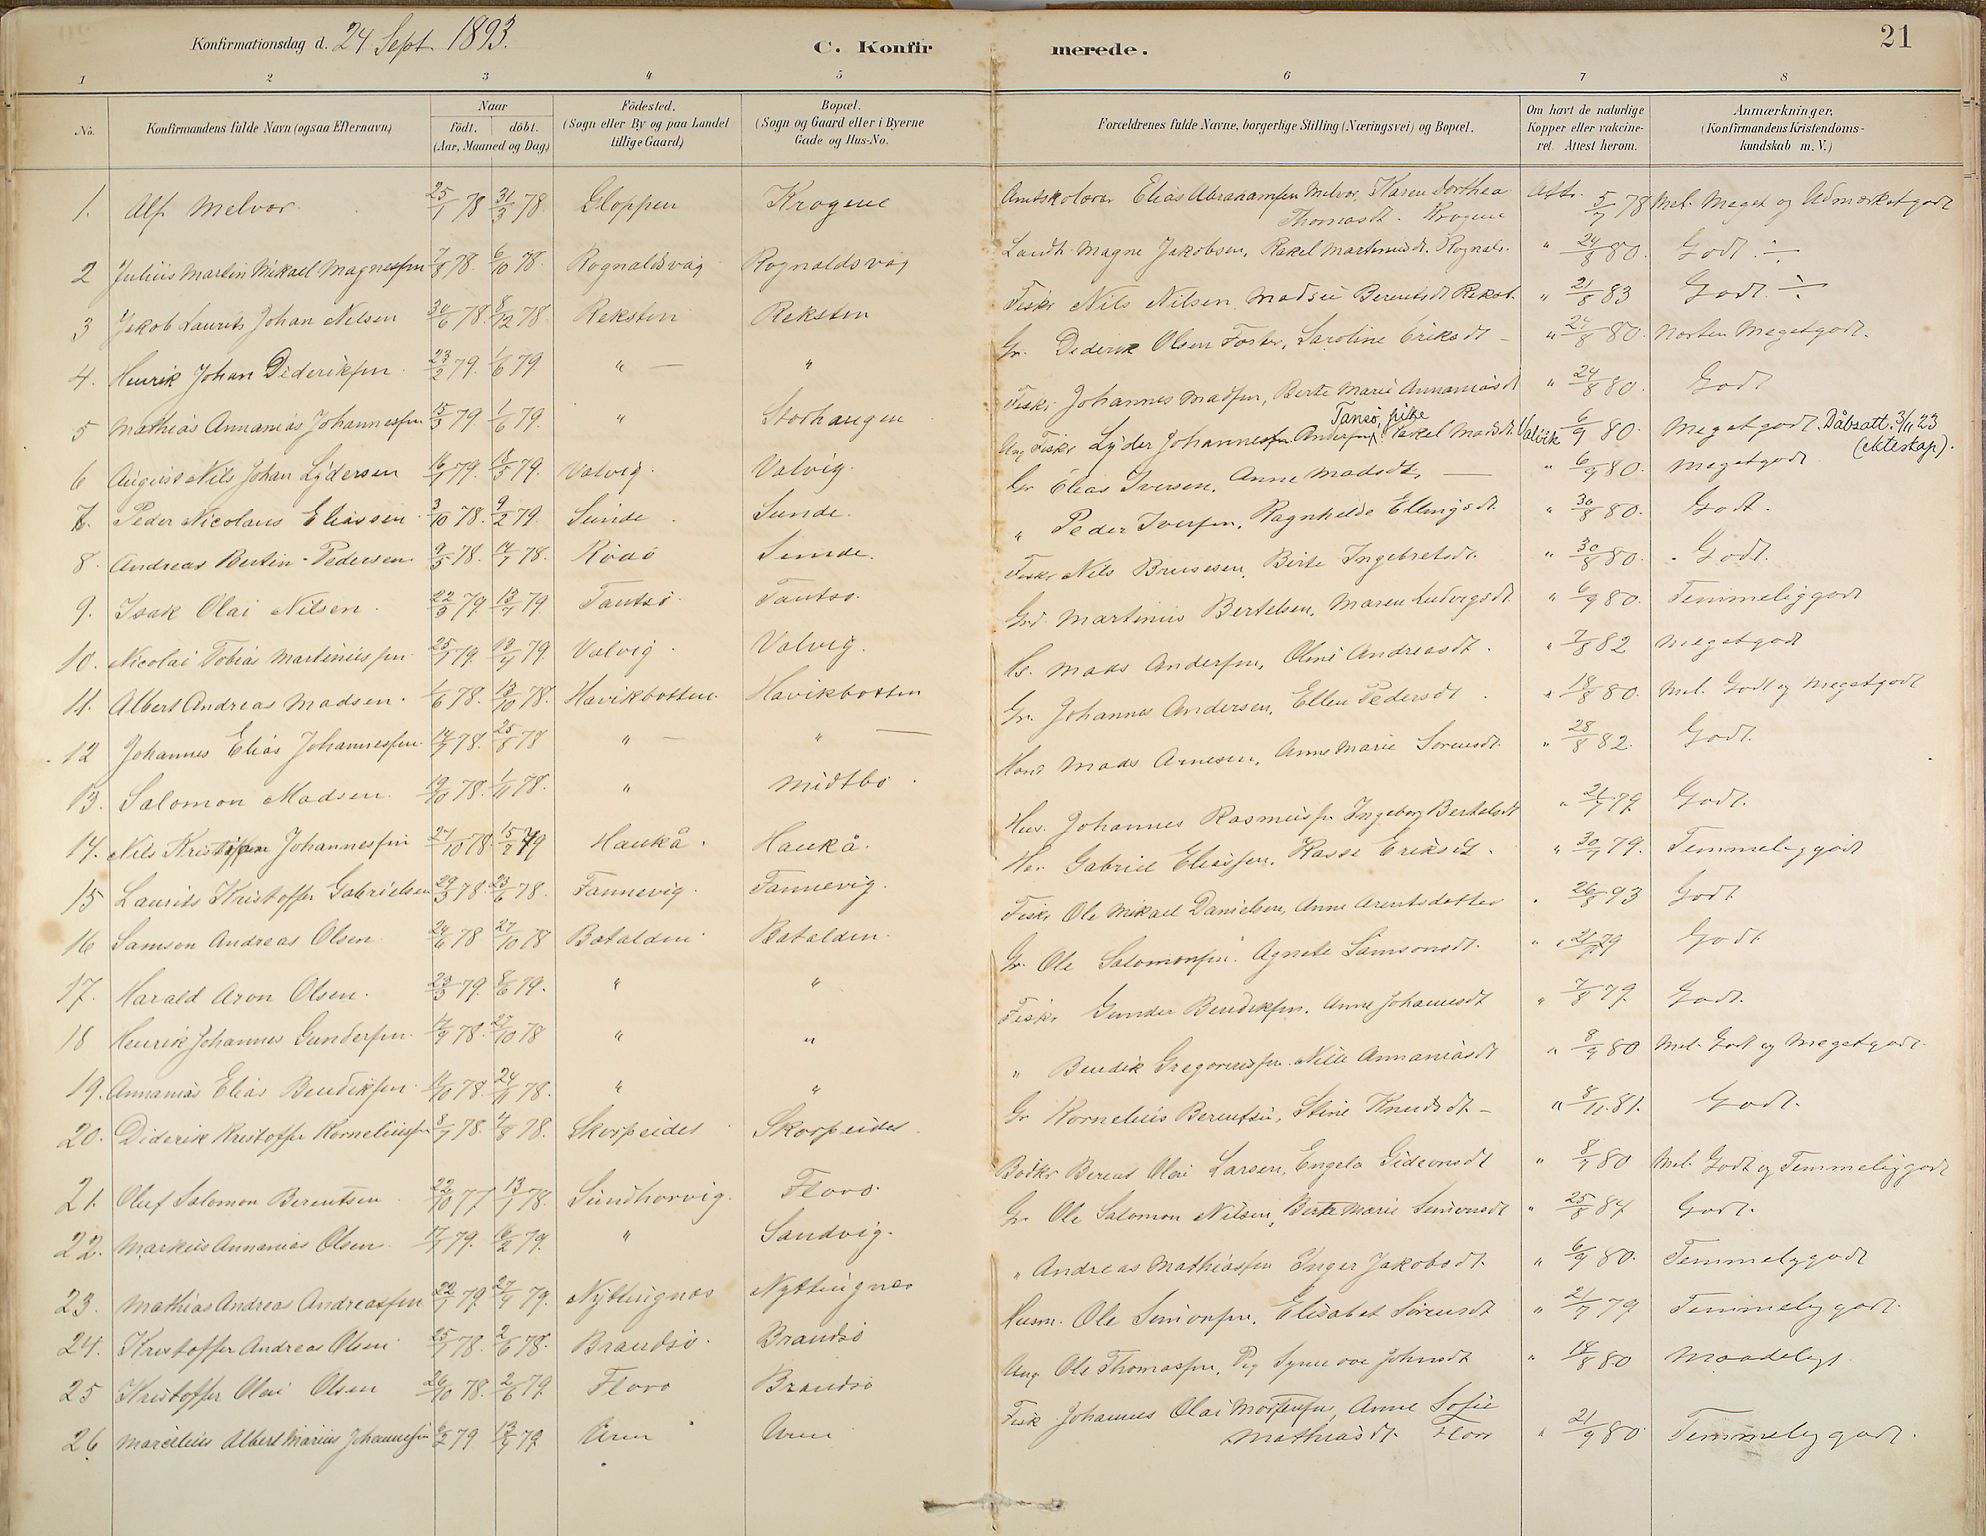 Konfirmationsdag d. 24 Sept. 1893.
C. Konfir merede.
21
1 2 3 4 5 6 7 8
No.
Konfirmandens fulde Navn (ogsaa Efternavn)
Naar
födt. döbt.
(Aar, Maaned og Dag)
Födested.
(Sogn eller By og paa Landet
tillige Gaard)
Bopæl.
(Sogn og Gaard eller i Byerne
Gade og Hus-No.
Forældrenes fulde Navne, borgerlige Stilling (Næringsvei) og Bopæl.
Om havt de naturlige
Kopper eller vakcine-
ret. Attest herom.
Anmærkninger,
(Konfirmandens Kristendoms-
kundskab m. V.)
1. Alf Melvær 25/1 78 31/3 78 Gloppen Krogene Elias Abrahamsen Melvær, Karen Dorthea Thomasdt. Krogene 5/7 78 Mel. Meget og Udmærket godt
2 Julius Martin Mikael Magnessen 7/8 78. 6/10 78. Rognaldsvåg Rognaldsvåg Magne Jakobsen, Rakel Martinusdt. Rognals. " 24/8 80. Godt ÷
3 Jakob Laurits Johan Nilsen 30/6 78. 8/12 78 Reksten Reksten Fiskr Nils Nilsen Berentsdt Rekst. " 21/8 83 Godt ÷
4. Henrik Johan Dideriksen 23/2 79. 1/6 79. " — " Gr. Diderik Olsen Eriksdt — " 24/8 80. Meget godt.
5 Mathias Annanias Johannessen 15/3 79 1/6 79. " Storhaugen Fiskr Johannes Madsen, Berte Marie Annaniasdt " 24/8 80. Godt
6 August Nils Johan Lydersen 16/1 79. 18/5 79. Valvig. Valvig. Ung Fiskr Lyder Johannessen Andersen, Tansø, pike Rakel Madsdt. Valvik 6/9 80. Meget godt. Dåbsatt. 3/11 23
(ekteskap).
7. Peder Nicolaus Eliassen 3/10 78. 9/2 79. Sunde. Sunde. Gr Elias Iversen, Anne Madsdt, — " 6/9 80. Meget godt
8. Andreas Bertin Pedersen 9/5 78. 14/7 78. Rödö Sunde. " Peder Iversen, Ragnhilde Ellingsdt. " 30/8 80. Godt.
9. Isak Olai Nilsen. 22/3 79 13/7 79. Tansö. Tansö. Fiskr Nils Berte Ingebretsdt. " 30/8 80. Godt.
10. Nicolai Tobias Martinussen 25/1 79. 13/4 79. Valvig. Valvig. Martinus Bertelsen, Maren Ludvigsdt. " 6/9 80. Temmelig godt
11. Albert Andreas Madsen. 1/6 78. 13/10 78. Havikbotten. Havikbotten Mads Andersen, Oline Andreasdt. " 7/8 82 Meget godt
12 Johannes Elias Johannessen 14/7 78. 25/8 78 " — " — Gr. Johannes Andersen, Ellen Pedersdt " 18/8 80. Mel. Godt og Meget godt
13. Salomon Madsen 19/10 78. 1/11 78. " Midtbö. Mads Arnesen, Anne Marie Sorensdt. " 28/8 82. Godt.
14. Nils Kristian Johannessen 27/10 78 15/2 79 Haukå. Haukå. Hus. Johannes Rasmussen, Ingeborg Bertelsdt " 21/7 79. Godt.
15 Laurits Kristoffer Gabrielsen 29/3 78. 23/6 78. Fannevig. Fannevig. Gabriel Eliassen, Eriksdt. " 30/7 79. Temmelig godt
16 Samson Andreas Olsen 24/6 78 27/10 78 Batalden Batalden. Fiskr Ole Mikael Danielsen, Anne Arentsdatter " 26/8 93 Godt
17. Harald Aron Olsen. 23/3 79. 8/6 79. " " Gr. Ole Salomonsen. Agnete Samsonsdt. " 21/7 79 Godt
18 Henrik Johannes Gundersen 17/9 78. 27/10 78 " " Fiskr Gunder Bendiksen, Anne Johannesdt " 7/8 79. Godt.
19. Annanias Elias Bendiksen 11/10 78. 24/11 78. " " " Bendik Annaniasdt " 8/9 80 Mel. Godt og Meget godt
20. Diderik Kristoffer Korneliussen 8/7 78. 4/8 78. Skorpeidet Skorpeidet Gr Kornelius Berentsen, Stine Knudsdt — " 8/11 81. Godt.
21. Oluf Salomon Berentsen 22/10 77 13/1 78. Sundhorvig. Floro. Bodkr Berent Olai Larsen, Engela Gideonsdt " 8/9 80 Mel. Godt og Temmelig godt
22. Markus Annanias Olsen 17/1 79. 16/2 79. " Sandvig. Gr. Ole Salomon Nilsen, Berte Marie Simonsdt " 25/8 84 Godt.
23. Mathias Andreas Andreassen 22/1 79. 27/4 79. Nyttingnes Nyttingnes " Andreas Mathiassen Inger Jakobsdt. " 6/9 80. Temmelig godt
24. Kristoffer Andreas Olsen 25/1 78. 2/6 78. Brandsö. Brandsö Husm. Ole Simonsen, Elisabet Sörensdt " 21/7 79 Temmelig godt.
25 Kristoffer Olai Olsen 26/10 78. 2/6 79. Floro Brandsö Ung Ole Thomassen, Johnsdt " 18/8 80 Maadeligt.
26. Marcelius Albert Marius Johannessen 6/2 79 13/4 79. Fisk Johannes Olai Mortensen, Anne Sofie
Mathiasdt. Floro " 21/9 80 Temmelig godt.